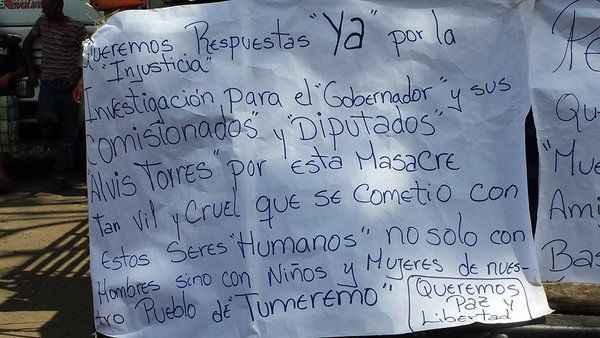 Queremos Respuestas "Ya" por la
"Injusticia"
Investigación para el "Gobernador" y sus
Comisionados" y "Diputados"
"Alvis Torres" por esta Masacre
tan Vil y Cruel que se cometio con
Estos Seres "Humanos" no solo con
Hombres sino con Niños y Mujeres de nues-
tro Pueblo de "Tumeremo"
Queremos
Paz y
Libertad
Qu
"Mue
Ami
Bas